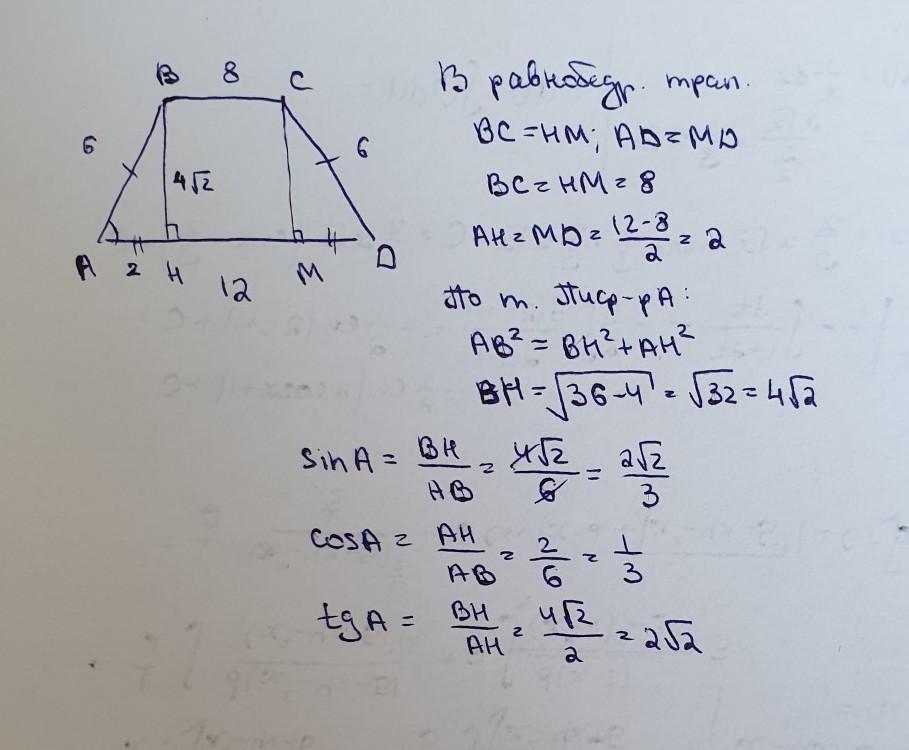 B 8 C
6 6
4√2
A 2 H 12 M D
В равнобедр. трап.
BC = HM; AD = MD
BC = HM = 8
AH = MD = (12-8)/2 = 2
По т. Пиф-рА:
AB² = BH² + AH²
BH = √(36-4) = √32 = 4√2
sin A = BH/AB = 4√2/6 = 2√2/3
cos A = AH/AB = 2/6 = 1/3
tg A = BH/AH = 4√2/2 = 2√2